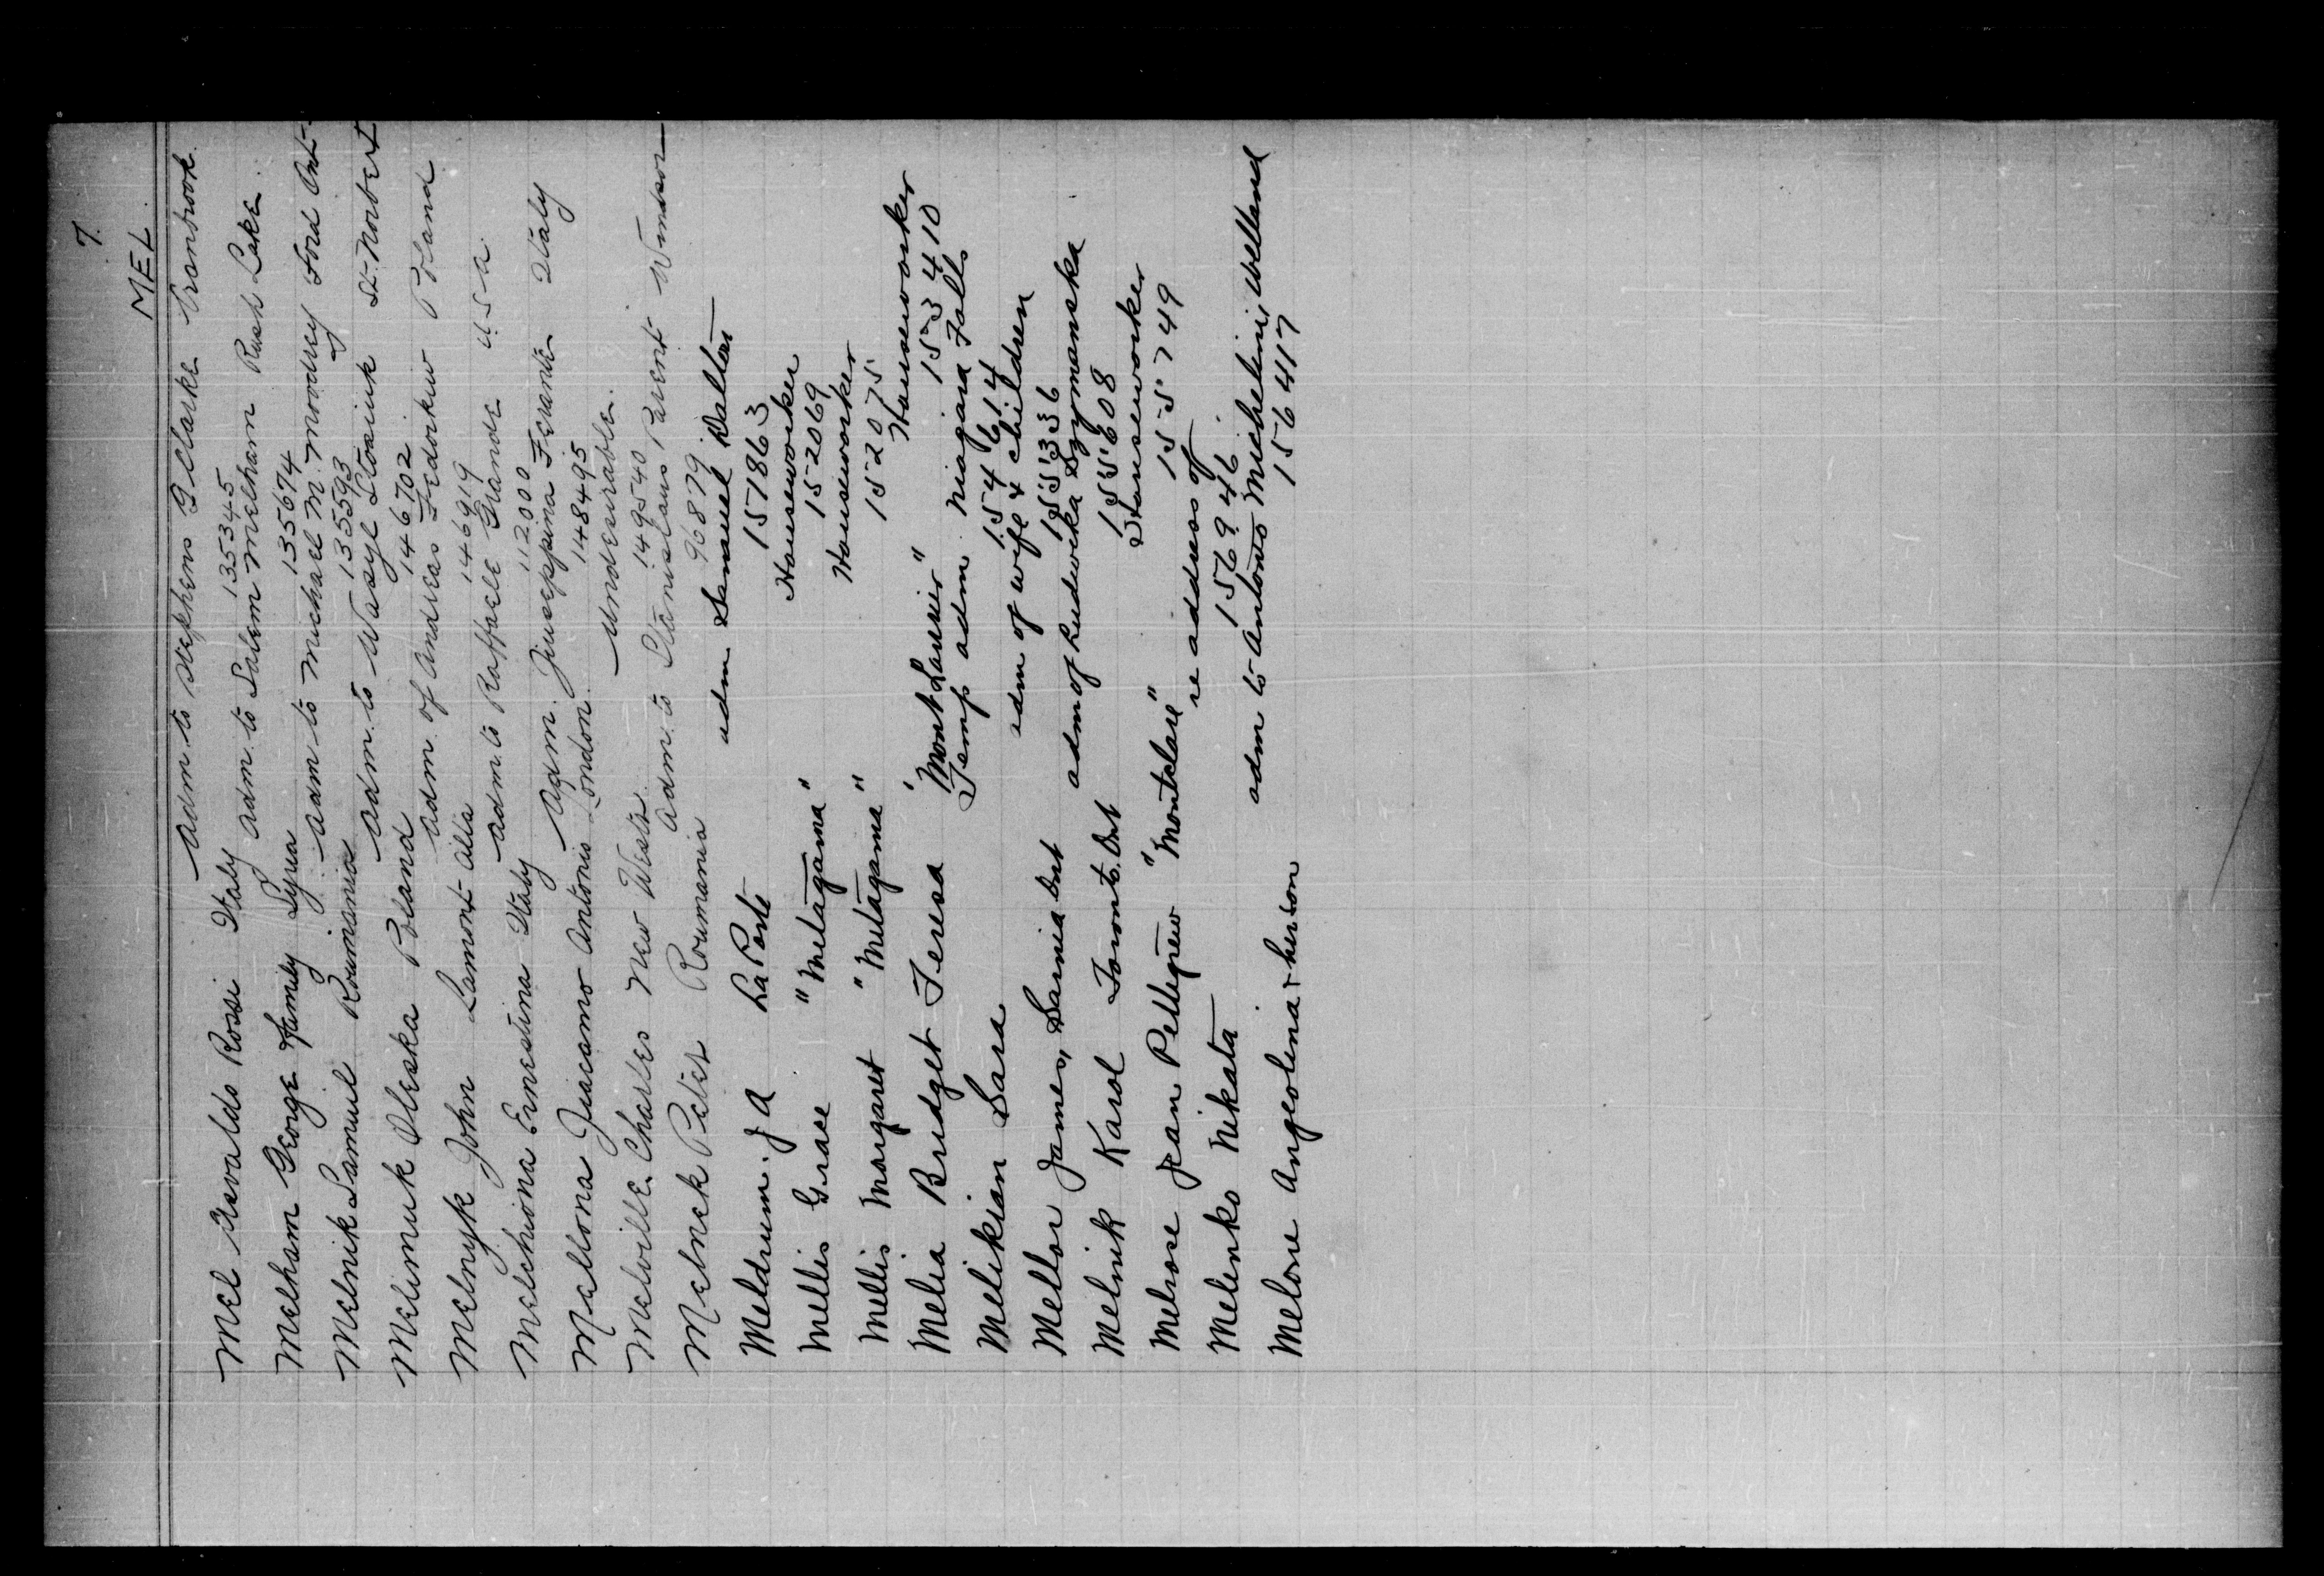 7.
MEL
Adm. to Stephens G Clarke Cranbrook.
Mel Osvaldo Rossi Italy 135345
Adm. to Salem Melham Rush Lake.
Melham George Family Syria 135674
Adm to Michael M. Moodrey Ford Ont-
Melnik Samuel Roumania 133593
Adm. to Wasyl Stoaiuk St-Norbert
Melimuk Oleska Poland 146702
Adm. of Andreas Fedorkiw Poland
Melnyk John Lamont Alta 146919
Adm. to Raffaele Grande U.S.A.
Melchiona Ernestina Italy 112000
Adm. Jiuseppina Ferrante Italy
Mellona Jiacamo Antonio London. 148495
Undesirable.
Melville. Charles New Westr. 149540
Adm. to Stanislaus Parent Windsor
Melnek Peter Roumania 96879.
adm Samuel Dalton
Meldrum. J A La Porte 151863
Houseworker
Mellis Grace "Metagama" 152069
Houseworker
Mellis Margaret "Metagama" 152075
Houseworker
Melia Bridget Teresa "Mont Laurier" 153410
Temp adm. Niagara Falls
Melikian Sara 154614
adm of wife & children
Mellor James, Sarnia Ont 155336
adm of Ludwika Szymanska
Melnik Karol Toronto. Ont 155608
Houseworker
Melrose Jean Pettigrew "Montclare" 155749
re address of
Melenko Nikata 156946.
adm to Antonio Michelini, Welland
Melore Angeolina & her son 156417